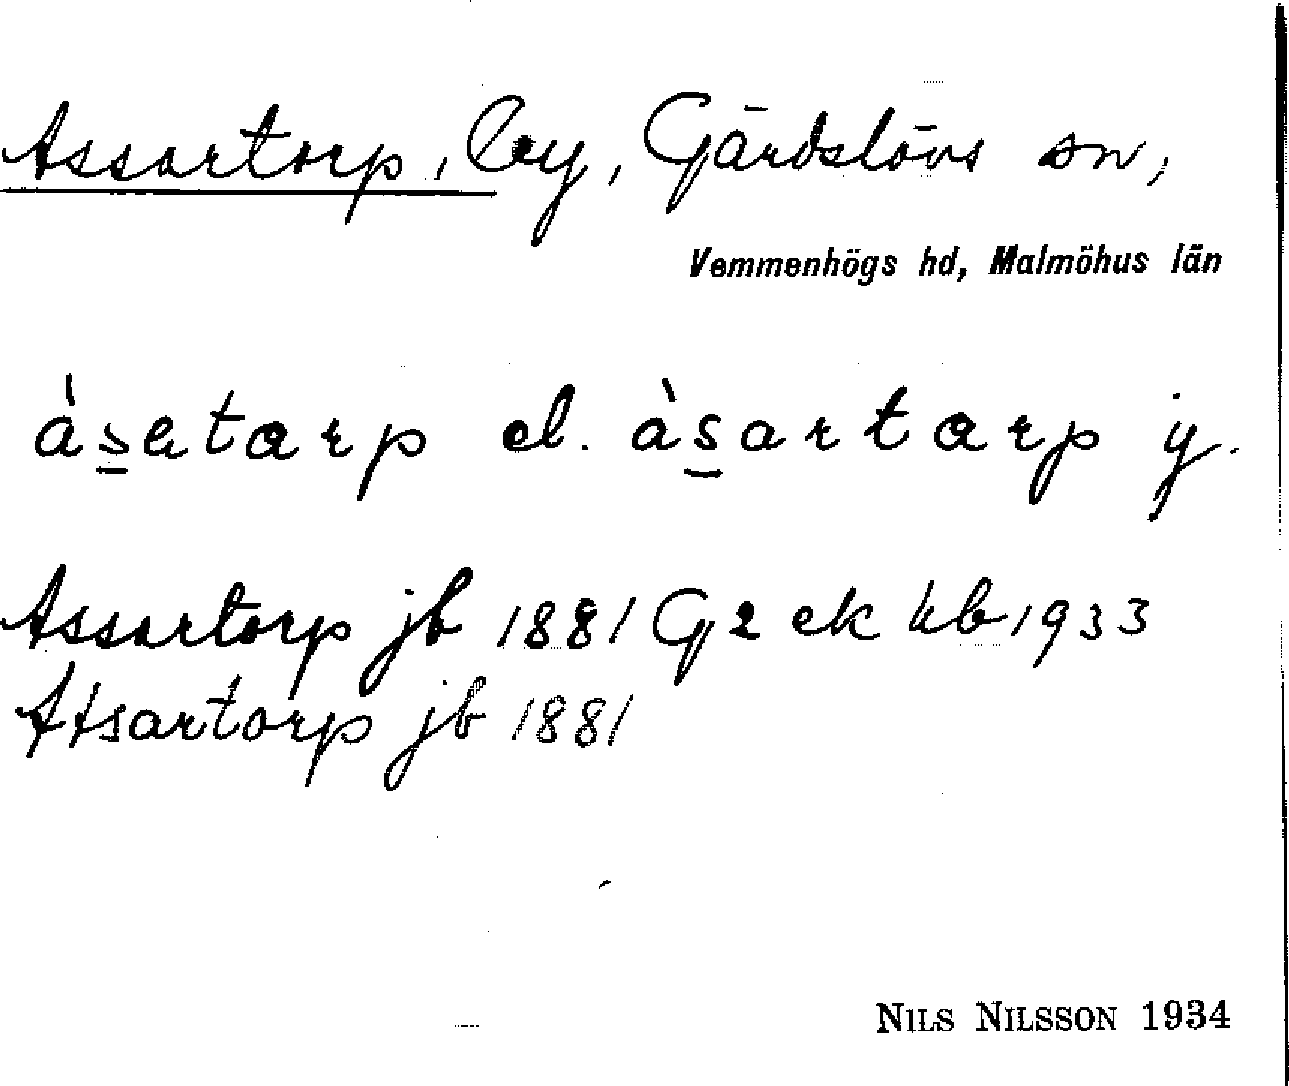 Assartorp, by, Gärdslövs sn,
Vemmenhögs hd, Malmöhus län
àsatarp el. àsartarp y.
Assartorp jb 1881 G2 ek kb 1933
Atsartorp jb 1881
NILS NILSSON 1934